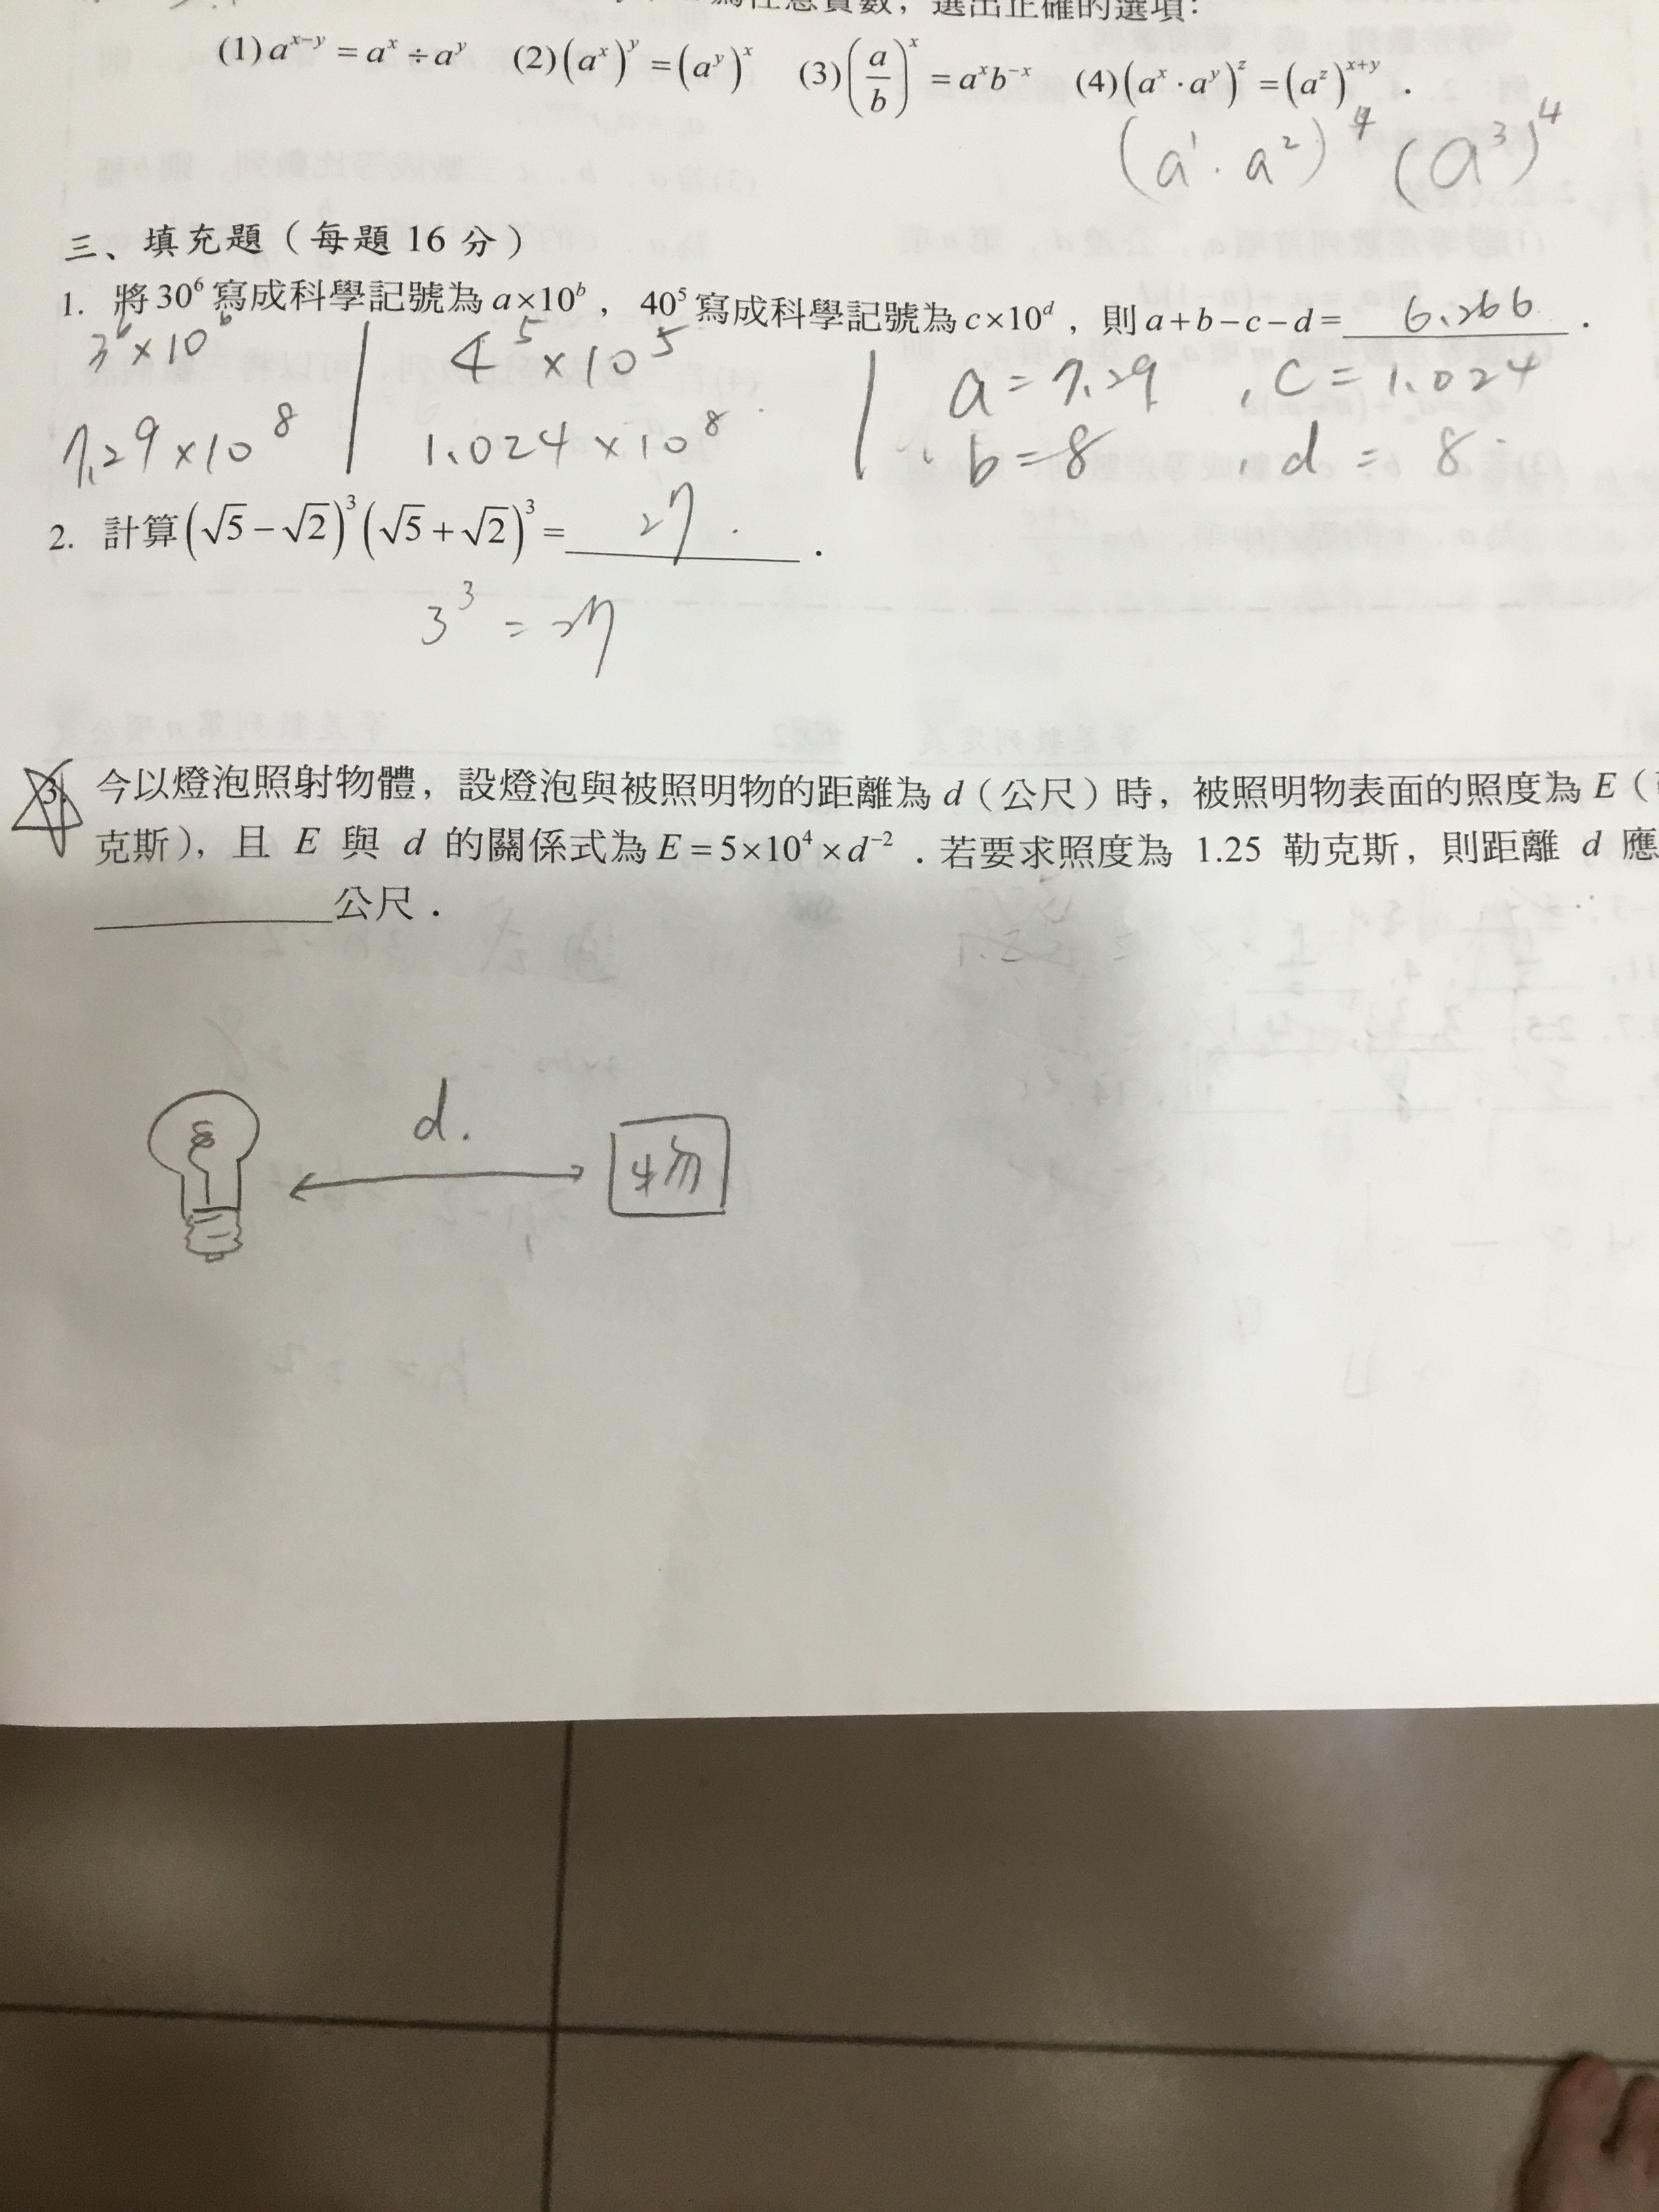 為任意實數，選出正確的選項：
(1) a^{x−y} = a^x ÷ a^y (2) (a^x)^y = (a^y)^x (3) (a/b)^x = a^x b^{−x} (4) (a^x · a^y)^z = (a^z)^{x+y} .
(a^1 · a^2)^4 (a^3)^4
三、填充題（每題 16 分）
1. 將 30^6 寫成科學記號為 a×10^b， 40^5 寫成科學記號為 c×10^d，則 a+b−c−d= 6.266 .
3^6 × 10^6 4^5 × 10^5 a = 7.29 , c = 1.024
7.29 × 10^8 1.024 × 10^8 b = 8 , d = 8
2. 計算 (√5 − √2)^3 (√5 + √2)^3 = 27 .
3^3 = 27
3. 今以燈泡照射物體，設燈泡與被照明物的距離為 d（公尺）時，被照明物表面的照度為 E（
克斯），且 E 與 d 的關係式為 E = 5×10^4 × d^{−2} . 若要求照度為 1.25 勒克斯，則距離 d 應
公尺 .
d.
物